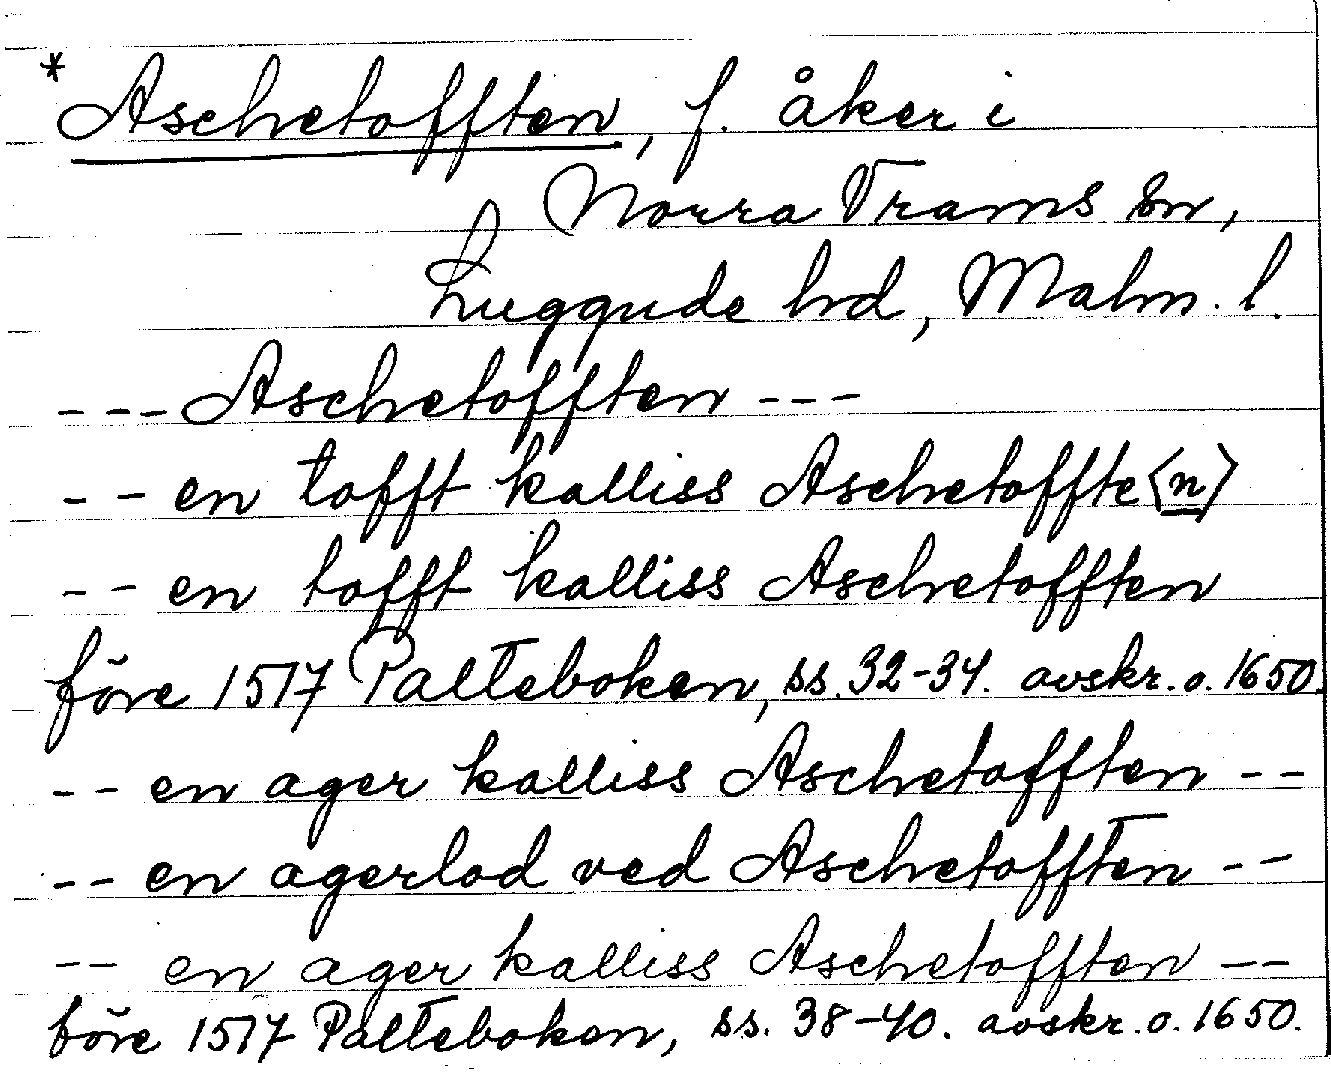 *Aschetofften, f. åker i
Norra Vrams sn,
Luggude hd, Malm. l.
--- Aschetofften ---
-- en tofft kalliss Aschetoffte⟨n⟩
-- en tofft kalliss Aschetofften
före 1517 Palteboken, ss. 32-34. avskr. o. 1650.
-- en ager kalliss Aschetofften --
-- en agerlod ved Aschetofften --
-- en ager kalliss Aschetofften --
före 1517 Palteboken, ss. 38-40. avskr. o. 1650.